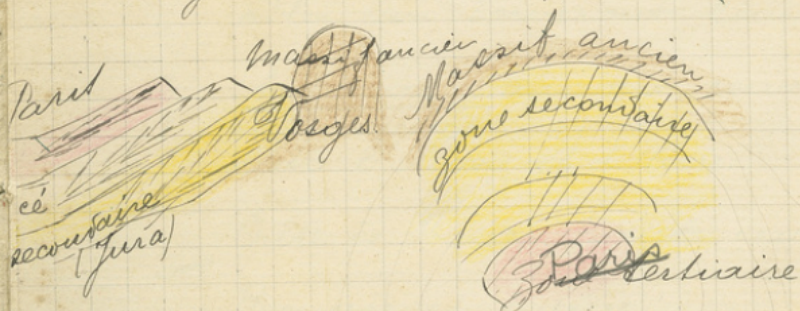 Paris
Massif ancien
Vosges
cé
secondaire
(Jura)
Massif ancien
zone secondaire
Paris
Zone tertiaire